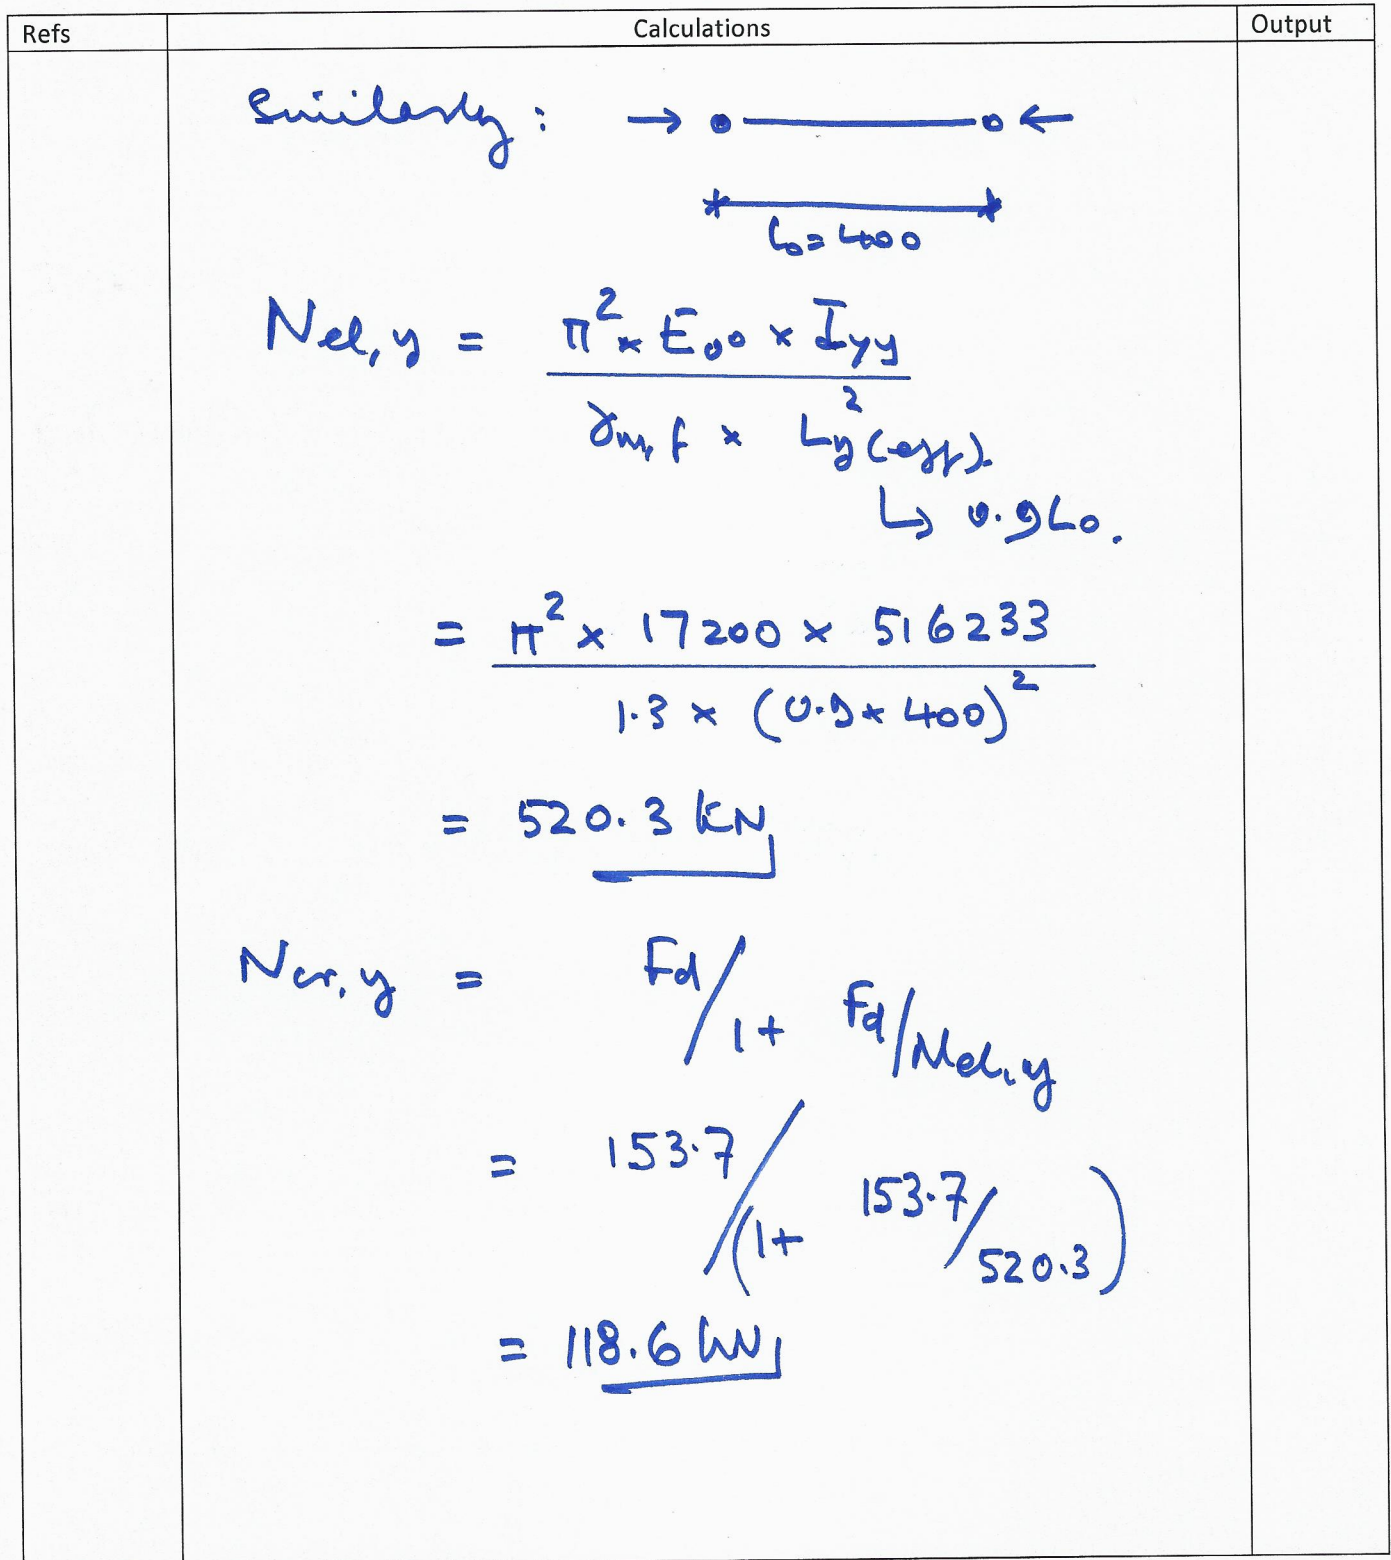 Refs Calculations Output
Similarly: → ←
L₀ = 400
Nel,y = π² × E₀° × Iyy / γm,f × Ly²(eff).
↳ 0.9L₀.
= π² × 17200 × 516233 / 1.3 × (0.9 × 400)²
= 520.3 kN
Ncr,y = Fd / 1 + Fd / Nel,y
= 153.7 / (1 + 153.7 / 520.3)
= 118.6 kN